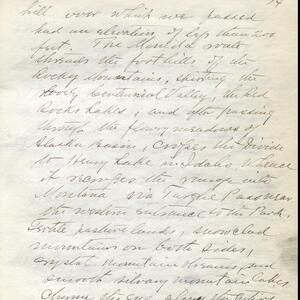 14
hill over which we passed
had an elevation of less than 200
feet. The Monida route
threads the foot hills of the
Rocky Mountains, skirting the
lovely Centennial Valley, the Red
Rocks Lakes, and after passing
through the flowery meadows of
Alaska Basin, crosses the Divide
to Henry Lake in Idaho, whence
it recrosses the range into
Montana via Targhee Pass near
the western entrance to the Park.
Fertile pasture lands, snow clad
mountains on both sides,
crystal mountain streams, and
smooth silvery mountain lakes
charm the eye along the